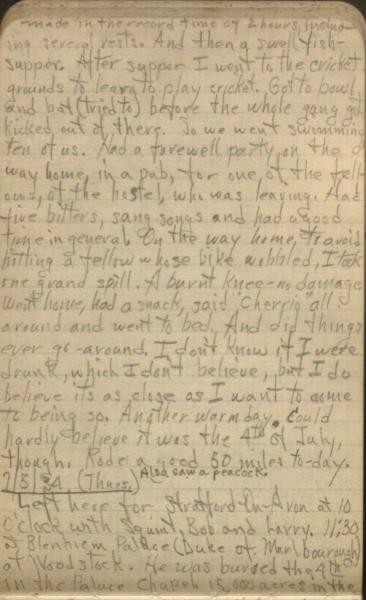 made in the record time of 2 hours, includ-
ing several rests. And then a swell fish-
supper. After supper I went to the cricket
grounds to learn to play cricket. Got to bowl
and bat (tried to) before the whole gang got
kicked out of there. So we went swimming
ten of us. Had a farewell party, on the
way home, in a pub, for one of the fell-
ows, of the hostel, who was leaving. Had
five bitters, sang songs and had a good
time in general. On the way home, to avoid
hitting a fellow whose bike wobbled, I took
one grand spill. A burnt knee-no damage
Went home, had a snack, said "Cherrio" all
around and went to bed. And did things
ever go-around. I don't know if I were
drunk, which I don't believe, but I do
believe its as close as I want to come
to being so. Another warm day. Could
hardly believe it was the 4th of July,
though. Rode a good 50 miles to-day.
Also saw a peacock.
7/5/34 (Thurs.)
Left here for Stratford-On-Avon at 10
o'clock with Squint, Bob and Larry. 11:30
at Blenheim Palace (Duke of Marlbourough)
at Woodstock. He was buried the 4th
in the Palace Chapel. 15,000 acres in the